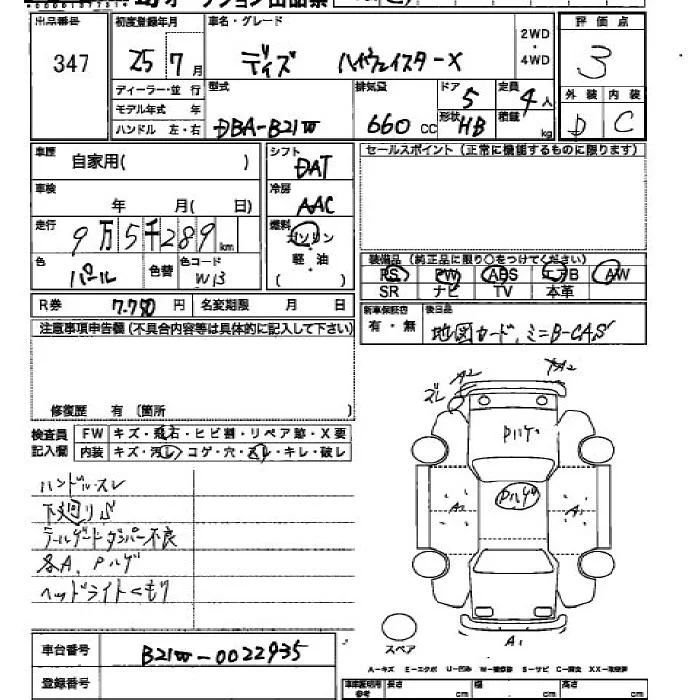 出品番号 初度登録年月 車名・グレード 2WD・4WD 評価点
347 25年7月 デイズ ハイウェイスターX 3
ディーラー・並行 型式 排気量 ドア 定員 外装 内装
モデル年式 年 5 4人 D C
ハンドル 左・右 DBA-B21W 660cc 形状 HB 積載 kg
車歴 自家用( ) シフト DAT セールスポイント(正常に機能するものに限ります)
車検 年 月( 日) 冷房 AAC
走行 9万5千289km 燃料 ガソリン・軽油 ( )
色 パール 色替 色コード W13
装備品(純正品に限り○をつけてください)
PS PW ABS エアB AW
SR ナビ TV 本革
R券 7.750円 名変期限 月 日
新車保証書 有・無 後日品 地図カード、ミニB-CAS
注意事項申告欄(不具合内容等は具体的に記入して下さい)
修復歴 有 (箇所 )
検査員記入欄 FW キズ・飛石・ヒビ割・リペア跡・X要
内装 キズ・汚レ・コゲ・穴・スレ・キレ・破レ
ハンドルスレ
下廻りS
テールゲートダンパー不良
各A、Pハゲ
ヘッドライトくもり
ズレ A2
Pハゲ
Pハゲ
A1
スペア
A1
車台番号 B21W-0022935
登録番号
A-キズ E-エクボ U-凹み W-補修跡 S-サビ C-腐食 XX-取替済
車庫証明用参考 長さ cm 幅 cm 高さ cm